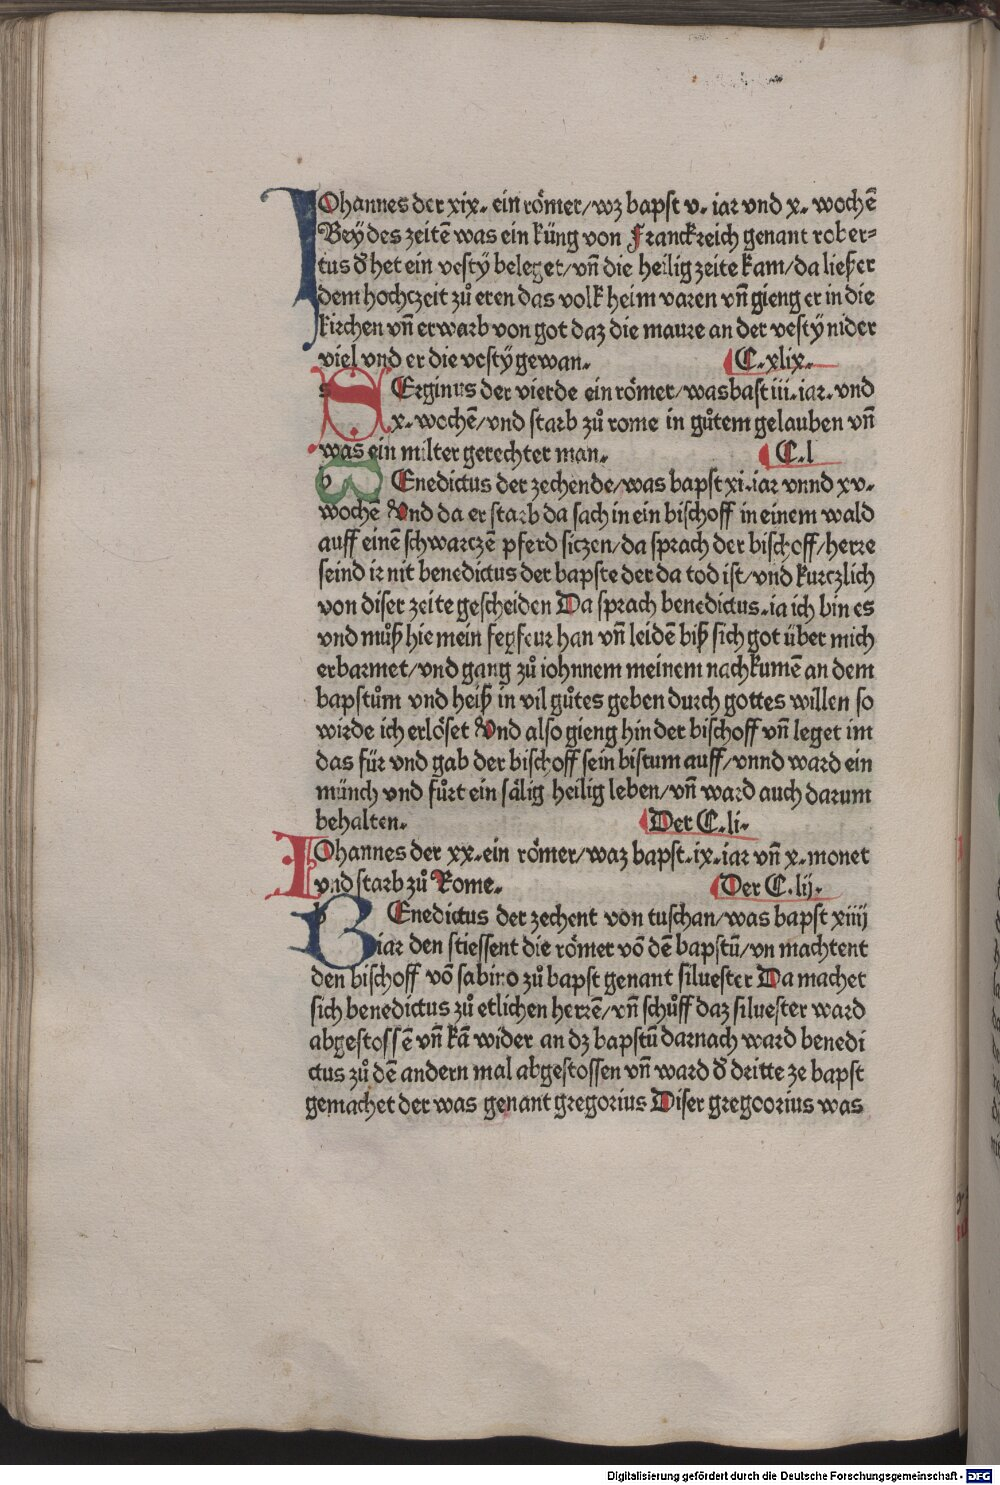 IOhannes der xix. ein römer/wz bapst v. iar vnd x. wochē
Bey des zeitē was ein küng von Franckreich genant rober⸗
tus d̄ het ein vestÿ beleget/vn̄ die heilig zeite kam/da ließ er
dem hochczeit zuͦ eren das volk heim varen vn̄ gieng er in die
kirchen vn̄ erwarb von got daz die maure an der vestÿ nider
viel vnd er die vestÿ gewan. C. xlix.
SErginus der vierde ein römer/was bast iii. iar. vnd
x. wochē/vnd starb zuͦ rome in guͦtem gelauben vn̄
was ein milter gerechter man. C. l
BEnedictus der zechende/was bapst xi. iar vnnd xv.
wochē Vnd da er starb da sach in ein bischoff in einem wald
auff einē schwarczē pferd siczen/da sprach der bischoff/herre
seind ir nit benedictus der bapste der da tod ist/vnd kurczlich
von diser zeite gescheiden Da sprach benedictus. ia ich bin es
vnd muͦß hie mein fegfeur han vn̄ leidē biß sich got über mich
erbarmet/vnd gang zuͦ iohnnem meinem nachkumē an dem
bapstuͦm vnd heiß in vil guͦtes geben durch gottes willen so
wirde ich erlöset Vnd also gieng hin der bischoff vn̄ leget im
das für vnd gab der bischoff sein bistum auff/vnnd ward ein
münch vnd fuͦrt ein sälig heilig leben/vn̄ ward auch darum
behalten. Der C. li.
IOhannes der xx. ein römer/waz bapst. ix. iar vn̄ x. monet
vnd starb zuͦ Rome. Der C. lij.
BEnedictus der zechent von tuschan/was bapst xiiij
iar den stiessent die römer vō dē bapstū/vn machtent
den bischoff vō sabino zuͦ bapst genant siluester Da machet
sich benedictus zuͦ etlichen herrē/vn̄ schuͦff daz siluester ward
abgestossē vn̄ kā wider an dz bapstū darnach ward benedi
ctus zuͦ dē andern mal abgestossen vn̄ ward d̄ dritte ze bapst
gemachet der was genant gregorius Diser gregoorius was
Digitalisierung gefördert durch die Deutsche Forschungsgemeinschaft - DFG